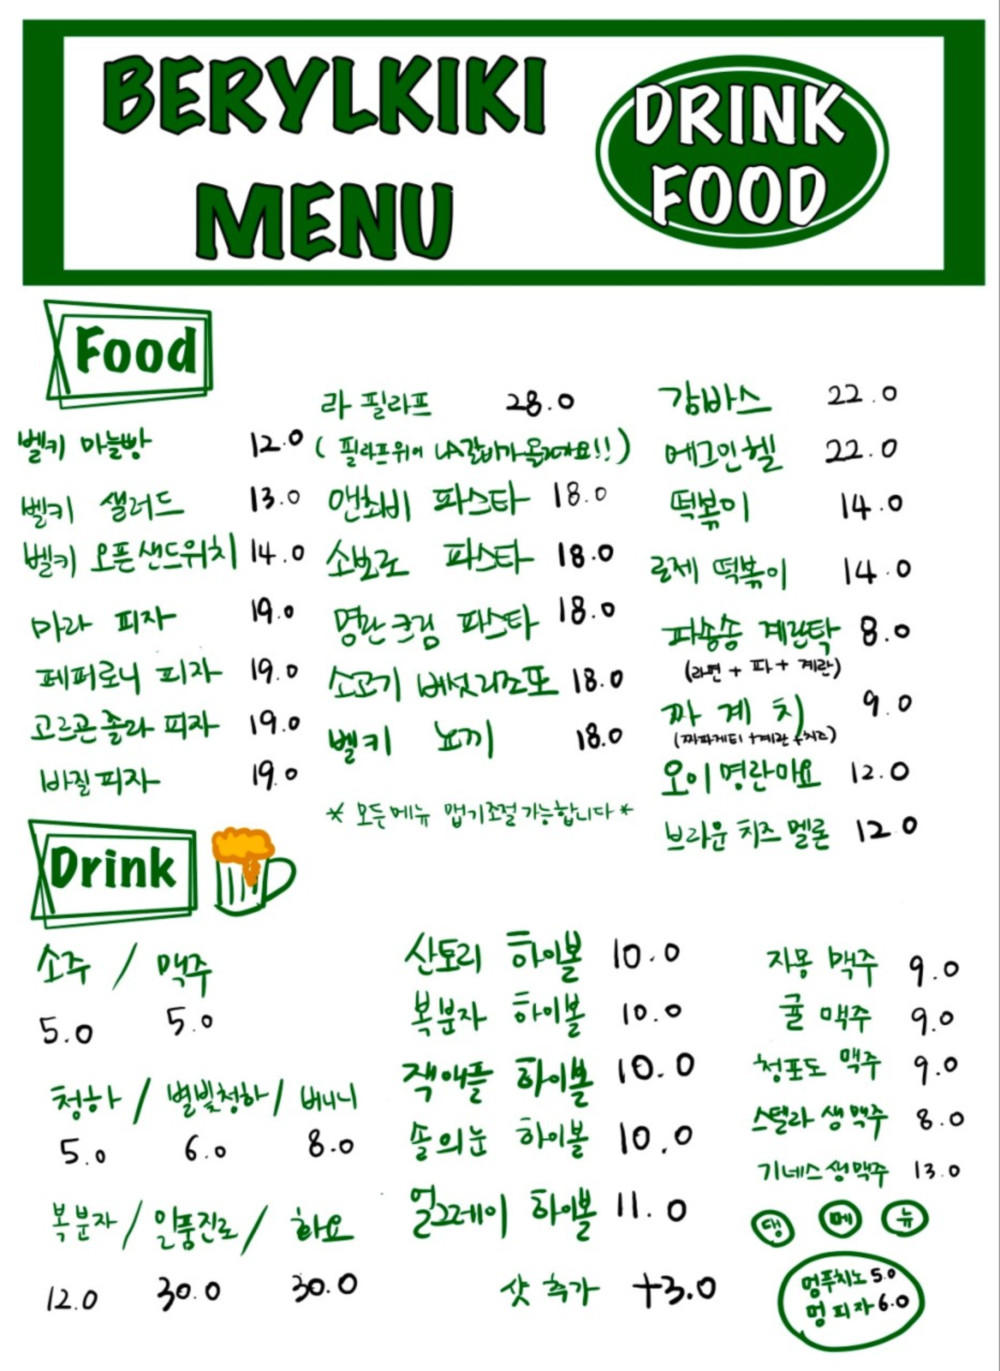 BERYLKIKI
MENU
DRINK
FOOD
Food
벨키 마늘빵 12.0
벨키 샐러드 13.0
벨키 오픈샌드위치 14.0
마라 피자 19.0
페퍼로니 피자 19.0
고르곤졸라 피자 19.0
바질피자 19.0
라 필라프 28.0
( 필라프위에 LA갈비가 올라가요!! )
앤쵸비 파스타 18.0
소보로 파스타 18.0
명란크림 파스타 18.0
소고기 버섯리조또 18.0
벨키 뇨끼 18.0
* 모든메뉴 맵기조절가능합니다 *
감바스 22.0
에그인헬 22.0
떡볶이 14.0
로제 떡볶이 14.0
파송송 계란탁 8.0
(라면 + 파 + 계란)
짜계치 9.0
(짜파게티 +계란 +치즈)
오이명란마요 12.0
브라운 치즈 멜론 12.0
Drink
소주 / 맥주
5.0 5.0
청하 / 별빛청하 / 버니니
5.0 6.0 8.0
복분자 / 일품진로 / 화요
12.0 30.0 30.0
산토리 하이볼 10.0
복분자 하이볼 10.0
잭애플 하이볼 10.0
솔의눈 하이볼 10.0
얼그레이 하이볼 11.0
샷 추가 +3.0
자몽 맥주 9.0
귤 맥주 9.0
청포도 맥주 9.0
스텔라 생맥주 8.0
기네스생맥주 13.0
댕 메 뉴
멍푸치노 5.0
멍피자 6.0